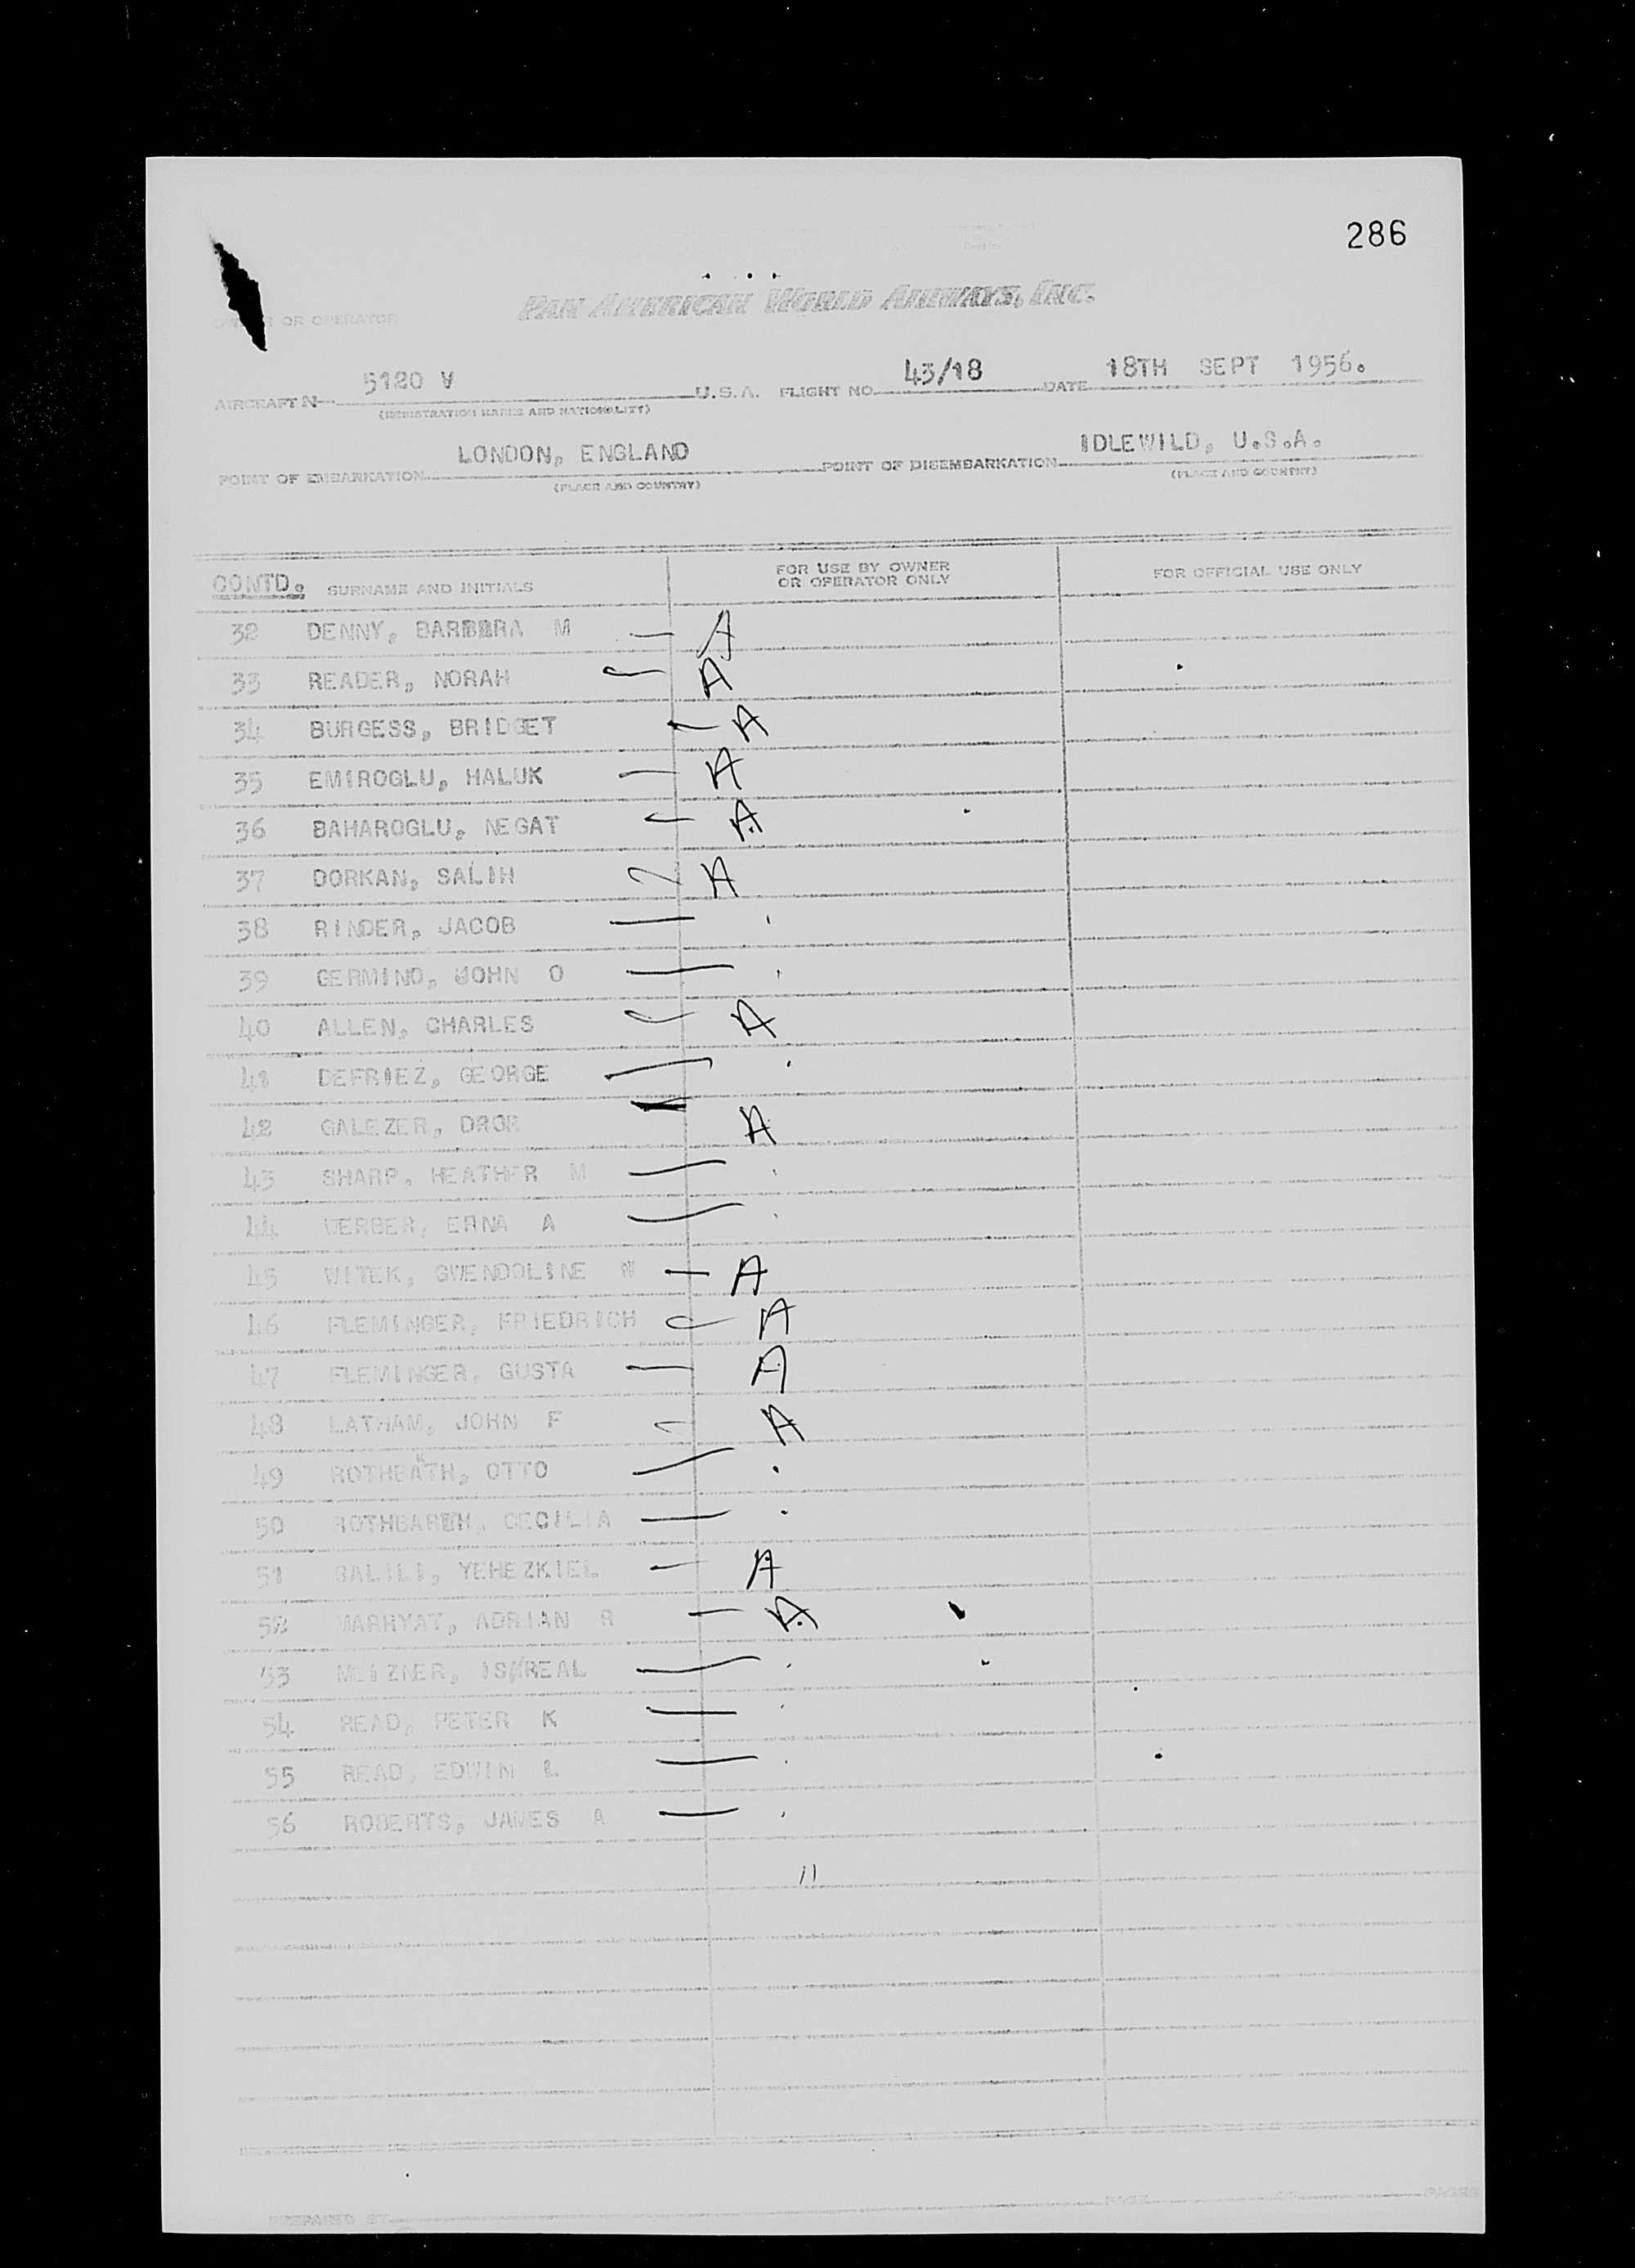 286
OWNER OR OPERATOR PAN AMERICAN WORLD AIRWAYS, INC.
AIRCRAFT N 5120 V U.S.A. FLIGHT NO. 43/18 DATE 18TH SEPT 1956.
(REGISTRATION MARKS AND NATIONALITY)
POINT OF EMBARKATION LONDON, ENGLAND POINT OF DISEMBARKATION IDLEWILD, U.S.A.
(PLACE AND COUNTRY) (PLACE AND COUNTRY)
CONTD. SURNAME AND INITIALS FOR USE BY OWNER OR OPERATOR ONLY FOR OFFICIAL USE ONLY
32 DENNY, BARBBRA M — A
33 READER, NORAH — A
34 BURGESS, BRIDGET — A
35 EMIROGLU, HALUK — A
36 BAHAROGLU, NEGAT — A
37 DORKAN, SALIH A
38 RINDER, JACOB —
39 GERMINO, JOHN O —
40 ALLEN, CHARLES A
41 DEFRIEZ, GEORGE —
42 GALEZER, DROR — A
43 SHARP, HEATHER M —
44 VERBER, ERNA A —
45 WITEK, GWENDOLINE W — A
46 FLEMINGER, FRIEDRICH A
47 FLEMINGER, GUSTA — A
48 LATHAM, JOHN F A
49 ROTHBATH, OTTO —
50 ROTHBARTH, CECILIA —
51 GALILI, YEHEZKIEL — A
52 MARRYAT, ADRIAN R — A
53 MEIZNER, IS/REAL —
54 READ, PETER K —
55 READ, EDWIN L —
56 ROBERTS, JAMES A —
11
PREPARED BY PAGE OF PAGES